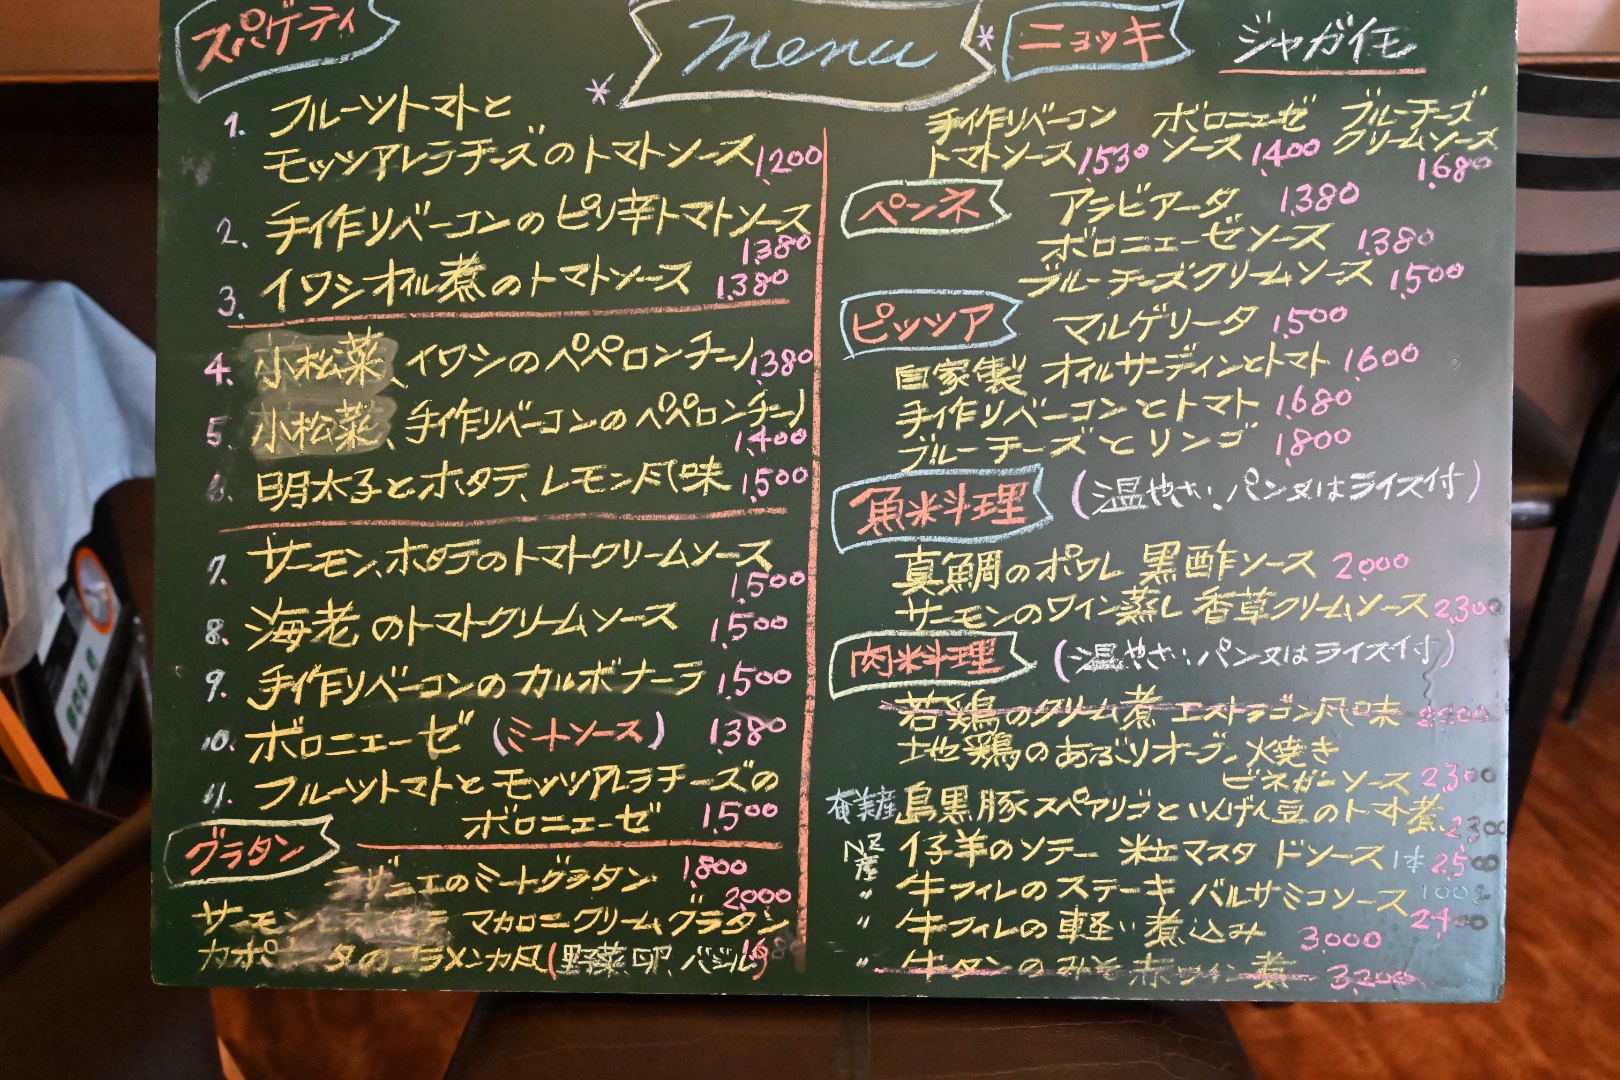 スパゲティ
menu
1. フルーツトマトと
モッツアレラチーズのトマトソース 1,200
2. 手作りベーコンのピリ辛トマトソース
1,380
3. イワシオイル煮のトマトソース 1,380
4. 小松菜、イワシのペペロンチーノ 1,380
5. 小松菜、手作りベーコンのペペロンチーノ
1,400
6. 明太子とホタテ、レモン風味 1,500
7. サーモン、ホタテのトマトクリームソース
1,500
8. 海老のトマトクリームソース 1,500
9. 手作りベーコンのカルボナーラ 1,500
10. ボロニェーゼ (ミートソース) 1,380
11. フルーツトマトとモッツアレラチーズの
ボロニェーゼ 1,500
グラタン
ラザニエのミートグラタン 1,800
2,000
サーモン、マカロニクリームグラタン
フラメンカ風(野菜、卵、バジル)
ニョッキ ジャガイモ
手作りベーコン ボロニェーゼ ブルーチーズ
トマトソース 1,530 ソース 1,400 クリームソース
1,680
ペンネ アラビアータ 1,380
ボロニェーゼソース 1,380
ブルーチーズクリームソース 1,500
ピッツア マルゲリータ 1,500
自家製 オイルサーディンとトマト 1,600
手作りベーコンとトマト 1,680
ブルーチーズとリンゴ 1,800
魚料理 (温やさい、パン又はライス付)
真鯛のポワレ 黒酢ソース 2,000
サーモンのワイン蒸し 香草クリームソース 2,300
肉料理 (温やさい、パン又はライス付)
若鶏のクリーム煮 エストラゴン風味
地鶏のあぶりオーブン火焼き
ビネガーソース 2,300
奄美産 島黒豚スペアリブといんげん豆のトマト煮
2,300
NZ産 仔羊のソテー 粒マスタードソース 1本
〃 牛フィレのステーキ バルサミコソース
2,400
〃 牛フィレの軽い煮込み 3,000
〃 牛タンのみそ赤ワイン煮 3,200